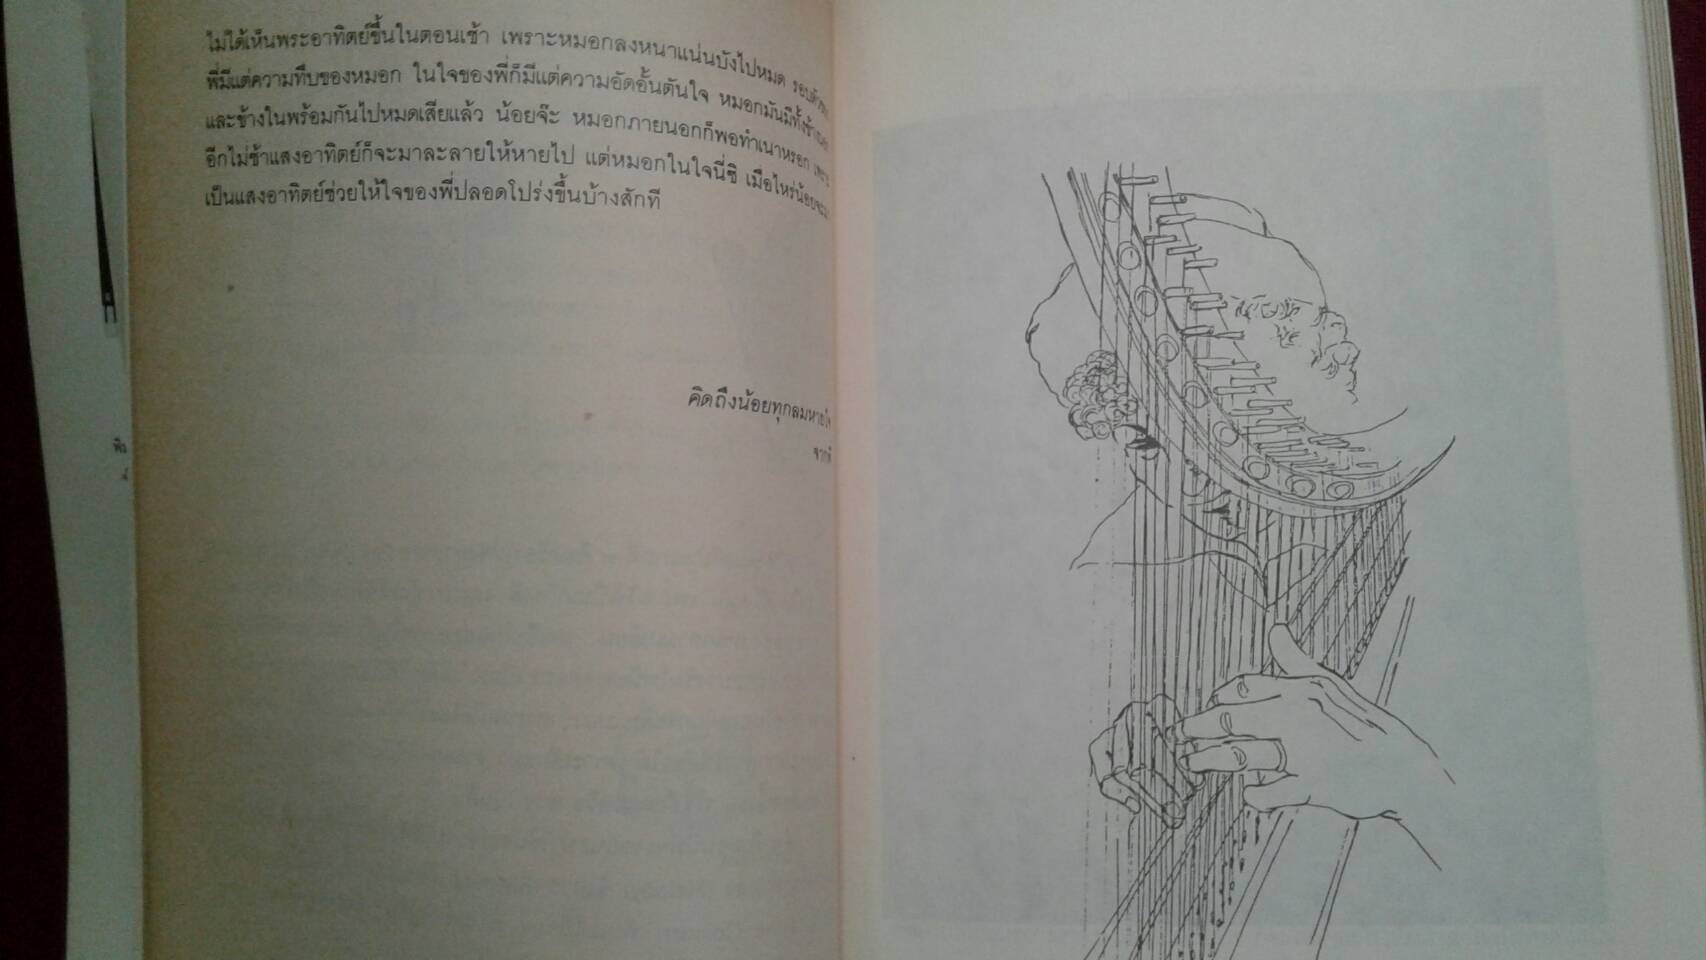 ไม่ได้เห็นพระอาทิตย์ขึ้นในตอนเช้า เพราะหมอกลงหนาแน่นบังไปหมด
พี่มีแต่ความทึบของหมอก ในใจของพี่ก็มีแต่ความอัดอั้นตันใจ หมอกมันมีทั้ง
และข้างในพร้อมกันไปหมดเสียแล้ว น้อยจ๊ะ หมอกภายนอกก็พอทำเนาหรอก
อีกไม่ช้าแสงอาทิตย์ก็จะมาละลายให้หายไป แต่หมอกในใจนี่ซิ เมื่อไหร่น้อยจะ
เป็นแสงอาทิตย์ช่วยให้ใจของพี่ปลอดโปร่งขึ้นบ้างสักที
คิดถึงน้อยทุกลมหายใจ